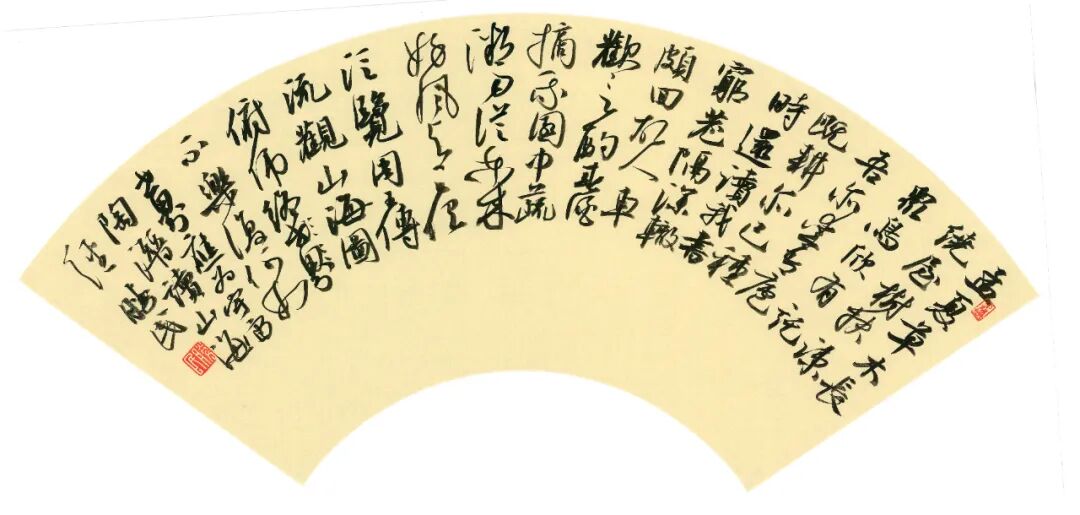 孟夏草木長
繞屋樹扶疎
眾鳥欣有託
吾亦爱吾庐
既耕亦已種
時還讀我書
窮巷隔深轍
頗回故人車
歡言酌春酒
摘我園中蔬
微雨從東來
好風与之俱
泛覽周王傳
流觀山海圖
俯仰終
不樂復何如
應为宇宙
書陶潛讀山海
經